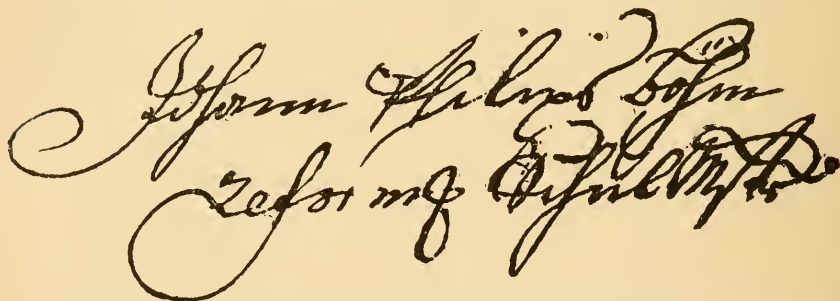 Johann Philips Böhm
reform. Schulmstr.